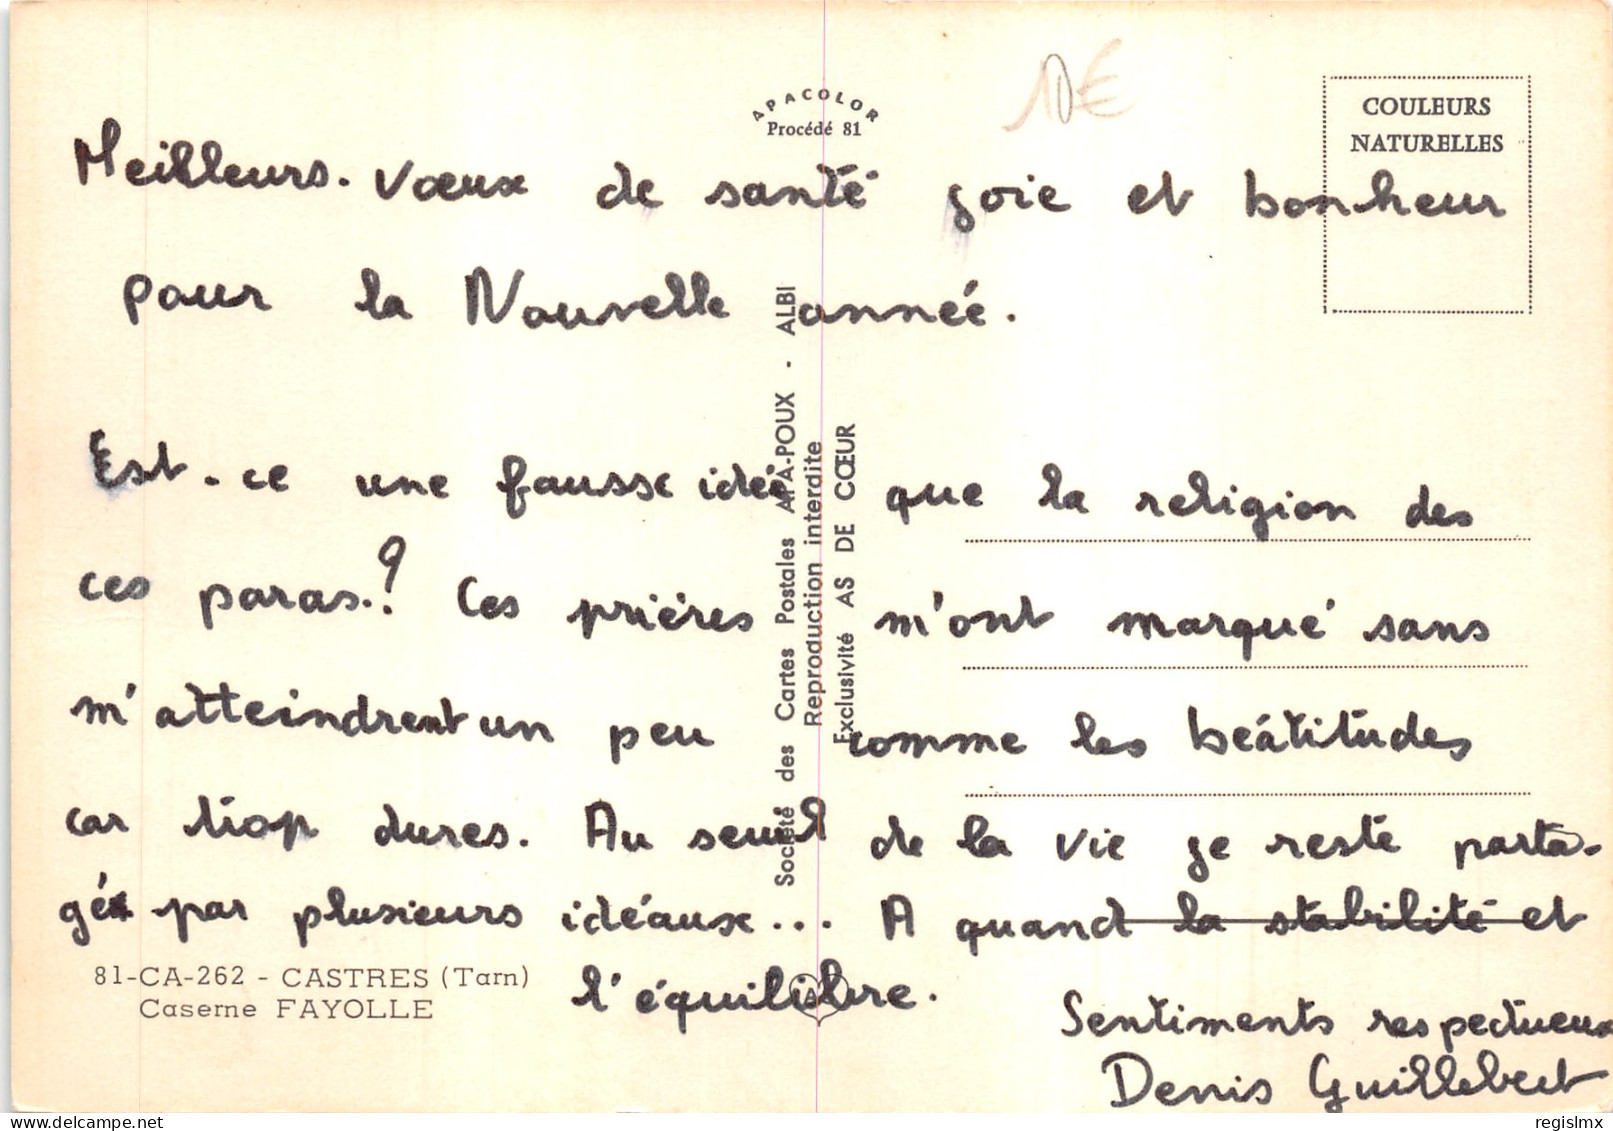 APACOLOR
Procédé 81
1€
COULEURS
NATURELLES
Meilleurs. Vœux de santé joie et bonheur
pour la Nouvelle année.
Est-ce une fausse idée que la religion des
ces paras.? Ces prières m'ont marqué sans
m'atteindrent un peu comme les béátitudes
car trop dures. Au seuil de la vie je reste parta-
gé par plusieurs idéaux... A quand la stabilité et
l'équilibre.
Sentiments respectueux
Denis Guillebert
81-CA-262 - CASTRES (Tarn)
Caserne FAYOLLE
Société des Cartes Postales APA-POUX - ALBI
Reproduction interdite
Exclusivité AS DE CŒUR
regislmx